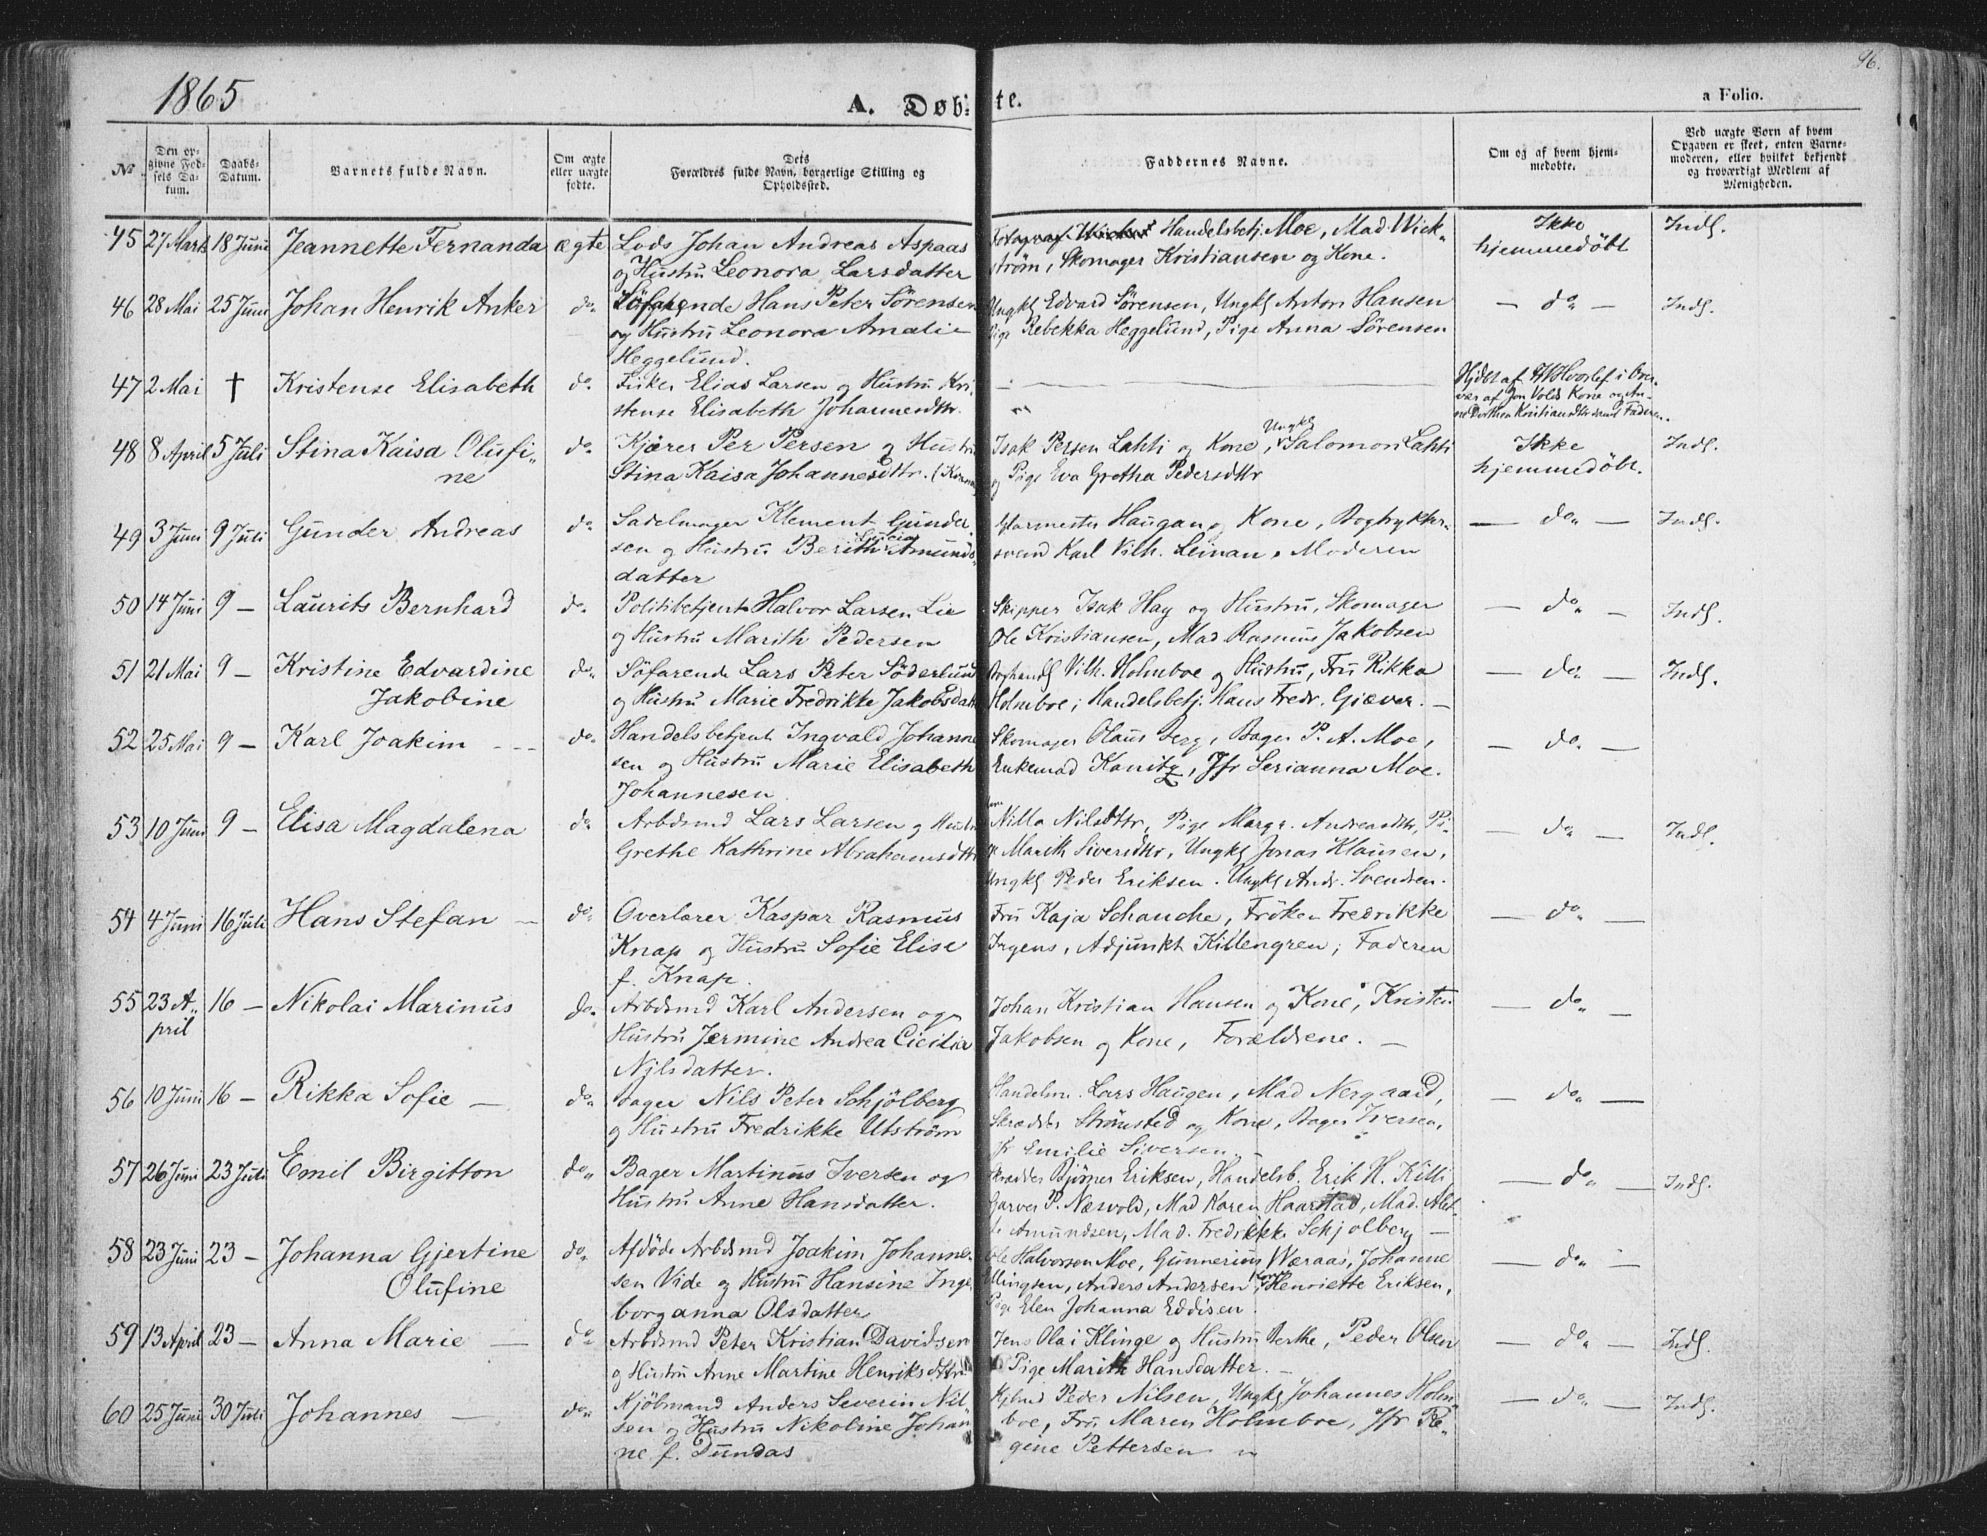 1865
A. Døbte.
96.
a Folio.
No
Den opgivne Fødsels Datum.
Daabs-Datum.
Barnets fulde Navn.
Om ægte eller uægte fødte.
Dets Forældres fulde Navn, borgerlige Stilling og Opholdssted.
Faddernes Navne.
Om og af hvem hjemmedøbte.
Ved uægte Børn af hvem Opgaven er skeet, enten Barnemoderen, eller hvilket bekjendt og troværdigt Medlem af Menigheden.
45 27 Marts 18 Juni Jeannette Fernanda ægte Lods Johan Andreas Aspaas Handelsbetj. Moe, Mad. Wick- Ikke Indl.
og Hustru Leonora Larsdatter strøm, Skomager Kristiansen og Kone. hjemmedøbt
46 28 Mai 25 Juni Johan Henrik Anker do. Söfarende Hans Peter Sörensen Ungkl Edvard Sørensen, Ungkl Anton Hansen — do — Indl.
og Hustru Leonora Amalie Pige Rebekka Heggelund, Pige Anna Sörensen
Heggelund.
47 2 Mai † Kristense Elisabeth do. Fisker Elias Larsen og Hustru Kri- Hjdøbt af Hvoslef i Over-
stense Elisabeth Johannesdttr. vær af Jon Volds Kone og An-
ne Dorthea Kristiansdttr samt Faderen.
48 8 April 5 Juli Stina Kaisa Olufi- do. Kjører Per Persen og Hustru Isak Persen Lahti og Kone, Ungkl Salomon Lahti Ikke Indl.
ne Stina Kaisa Johannesdttr. og Pige Eva Gretha Pedersdttr hjemmedøbt.
49 3 Juni 9 Juli Gunder Andreas do Sadelmager Klement Gunder- Glarmester Haugan og Kone, Bogtrykker- — do — Indl.
sen og Hustru Berith Lucia Amunds- svend Karl Vilh. Leinan, Moderen
datter
50 14 Juni 9 — Laurits Bernhard do. Politibetjent Halvor Larsen Lie Skipper Isak Hay og Hustru, Skomager — do — Indl.
og Hustru Marith Pedersen Ole Kristiansen, Mad Rasmus Jakobsen
51 21 Mai 9 — Kristine Edvardine do. Söfarende Lars Peter Söderlund Boghandl Vilh. Holmboe og Hustru, Fru Rikka — do — Indl.
Jakobine og Hustru Marie Fredrikke Jakobsdatt Holmboe; Handelsbetj. Hans Fredr. Giæver. —
52 25 Mai 9 — Karl Joakim do. Handelsbetjent Ingvald Johanne- Skomager Olaus Berg, Bager P. A. Moe, — do —
sen og Hustru Marie Elisabeth Enkemad Kanitz, Jfr Serianna Moe.
Johannesen
53 10 Juni 9 — Elisa Magdalena do Arbdsmd Lars Larsen og Hustru Nilla Nilsdttr, Pige Margr. Andreasdttr, Pi- — do — Indl.
Grethe Kathrine Abrahamsdttr ge Marith Siversdttr, Ungkl Jonas Klausen,
Ungkl Peder Eriksen. Ungkl Andr. Svendsen.
54 4 Juni 16 Juli Hans Stefan — do. Overlærer Kaspar Rasmus Fru Kaja Schanche, Fröken Fredrikke — do —
Knap og Hustru Sofie Elise Irgens, Adjunkt Killengren; Faderen
f. Knap.
55 23 A- 16 — Nikolai Marinus do. Arbdsmd Karl Andersen og Johan Kristian Hansen og Kone, Kristen — do —
pril Hustru Jermine Andrea Cicilia Jakobsen og Kone, Forældrene. —
Nilsdatter.
56 10 Juni 16 — Rikka Sofie — do. Bager Nils Peter Schjölberg Handelsm. Lars Haugen, Mad Nergaard, — do —
og Hustru Fredrikke Utström Skrædder Strömsted og Kone, Bager Iversen,
Jfr Emilie Siversen. —
57 26 Juni 23 Juli Emil Birgitton do. Bager Martinus Iversen og Skrædder Björner Eriksen, Handelsb. Erik H. Killi — do — Indl.
Hustru Anne Hansdatter. Garver P. Næsvold, Mad Karen Haarstad, Mad.
Amundsen, Mad. Fredrikke Schjölberg —
58 23 Juni 23 — Johanna Gjertine do. Afdöde Arbdsmd Joakim Johanne- Ole Halvorsen Moe, Gunnerius Wæraas, Johanne — do —
Olufine sen Vide og Hustru Hansine Inge- Ellingsen, Anders Andersen, Kone Henriette Eriksen,
borganna Olsdatter Pige Elen Johanna Eddisen.
59 13 April 23 — Anna Marie — do Arbdsmd Peter Kristian Davidsen Jens Olai Klinge og Hustru Berthe, Peder Olsen — do — Indl.
og Hustru Anne Martine Henriksdttr Pige Marith Hansdatter. —
60 25 Juni 30 Juli Johannes — do. Kjöbmand Anders Severin Nil- Kjbmd Peder Nilsen, Ungkl Johannes Holm- — do — Indl.
sen og Hustru Nikoline Johan- boe, Fru Maren Holmboe, Jfr Re-
ne f. Dundas gine Pettersen